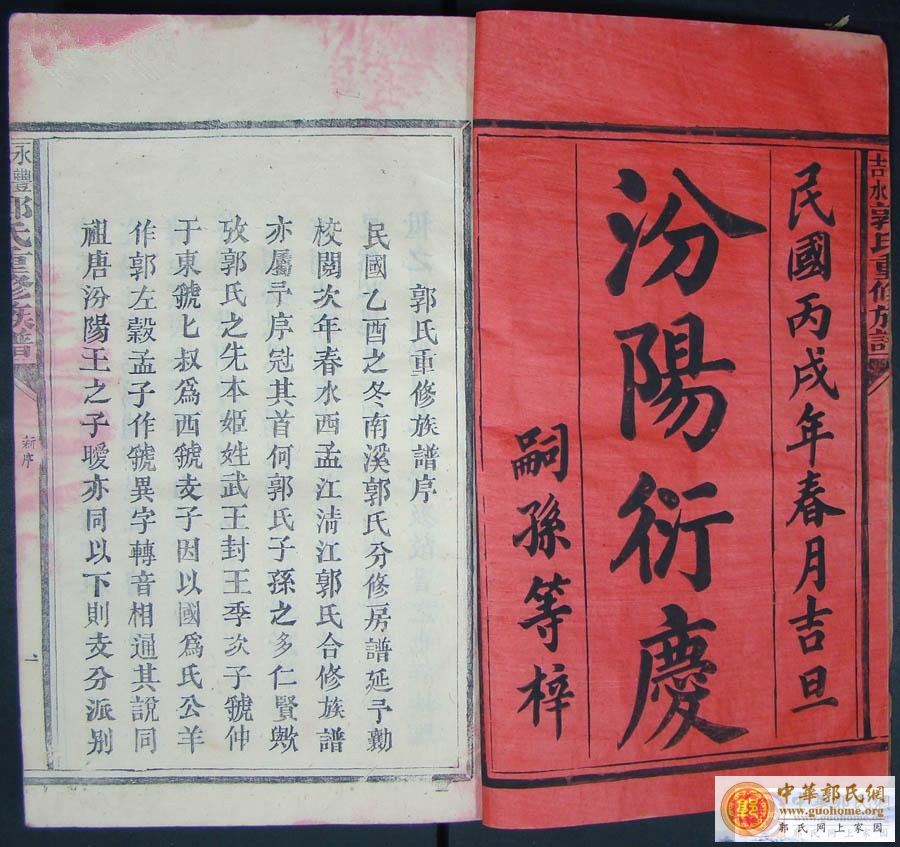 吉水郭氏重修族譜
民國丙戌年春月吉旦
汾陽衍慶
嗣孫等梓
郭氏重修族譜序
民國乙酉之冬南溪郭氏分修房譜延予勷
校閱次年春水西孟江淸江郭氏合修族譜
亦屬予序冠其首何郭氏子孫之多仁賢歟
攷郭氏之先本姬姓武王封王季次子虢仲
于東虢匕叔爲西虢支子因以國爲氏公羊
作郭左穀孟子作虢異字轉音相通其說同
祖唐汾陽王之子曖亦同以下則支分派别
永豐郭氏重修族譜
新序
一
中華郭氏網
www.guohome.org
郭氏网上家园